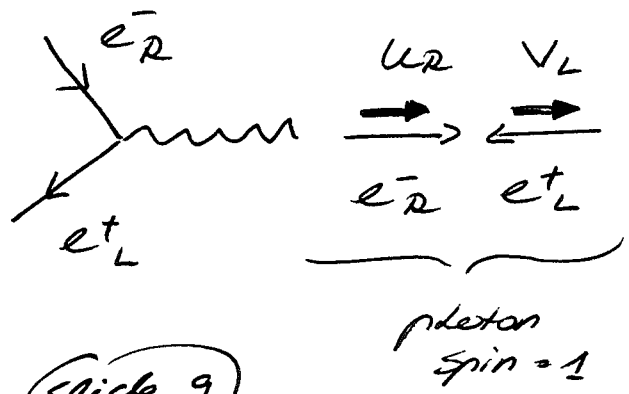 e⁻R
e⁺L
uR vL
e⁻R e⁺L
photon
spin = 1
slide 9